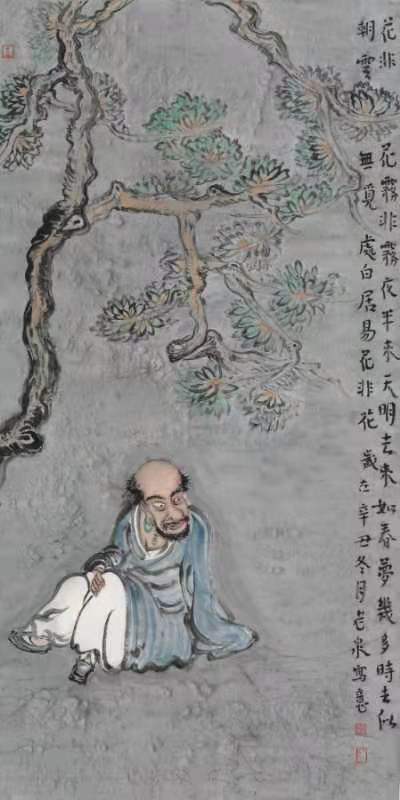 花非花霧非霧夜半来天明去来如春夢幾多時去似
朝雲無覓處白居易花非花歲在辛丑冬月老泉寫意